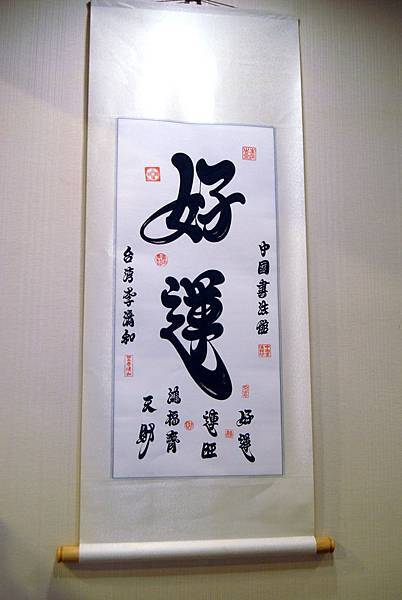 好運
中國書法館
台湾李清和
好運
運旺
鴻福齊
天財